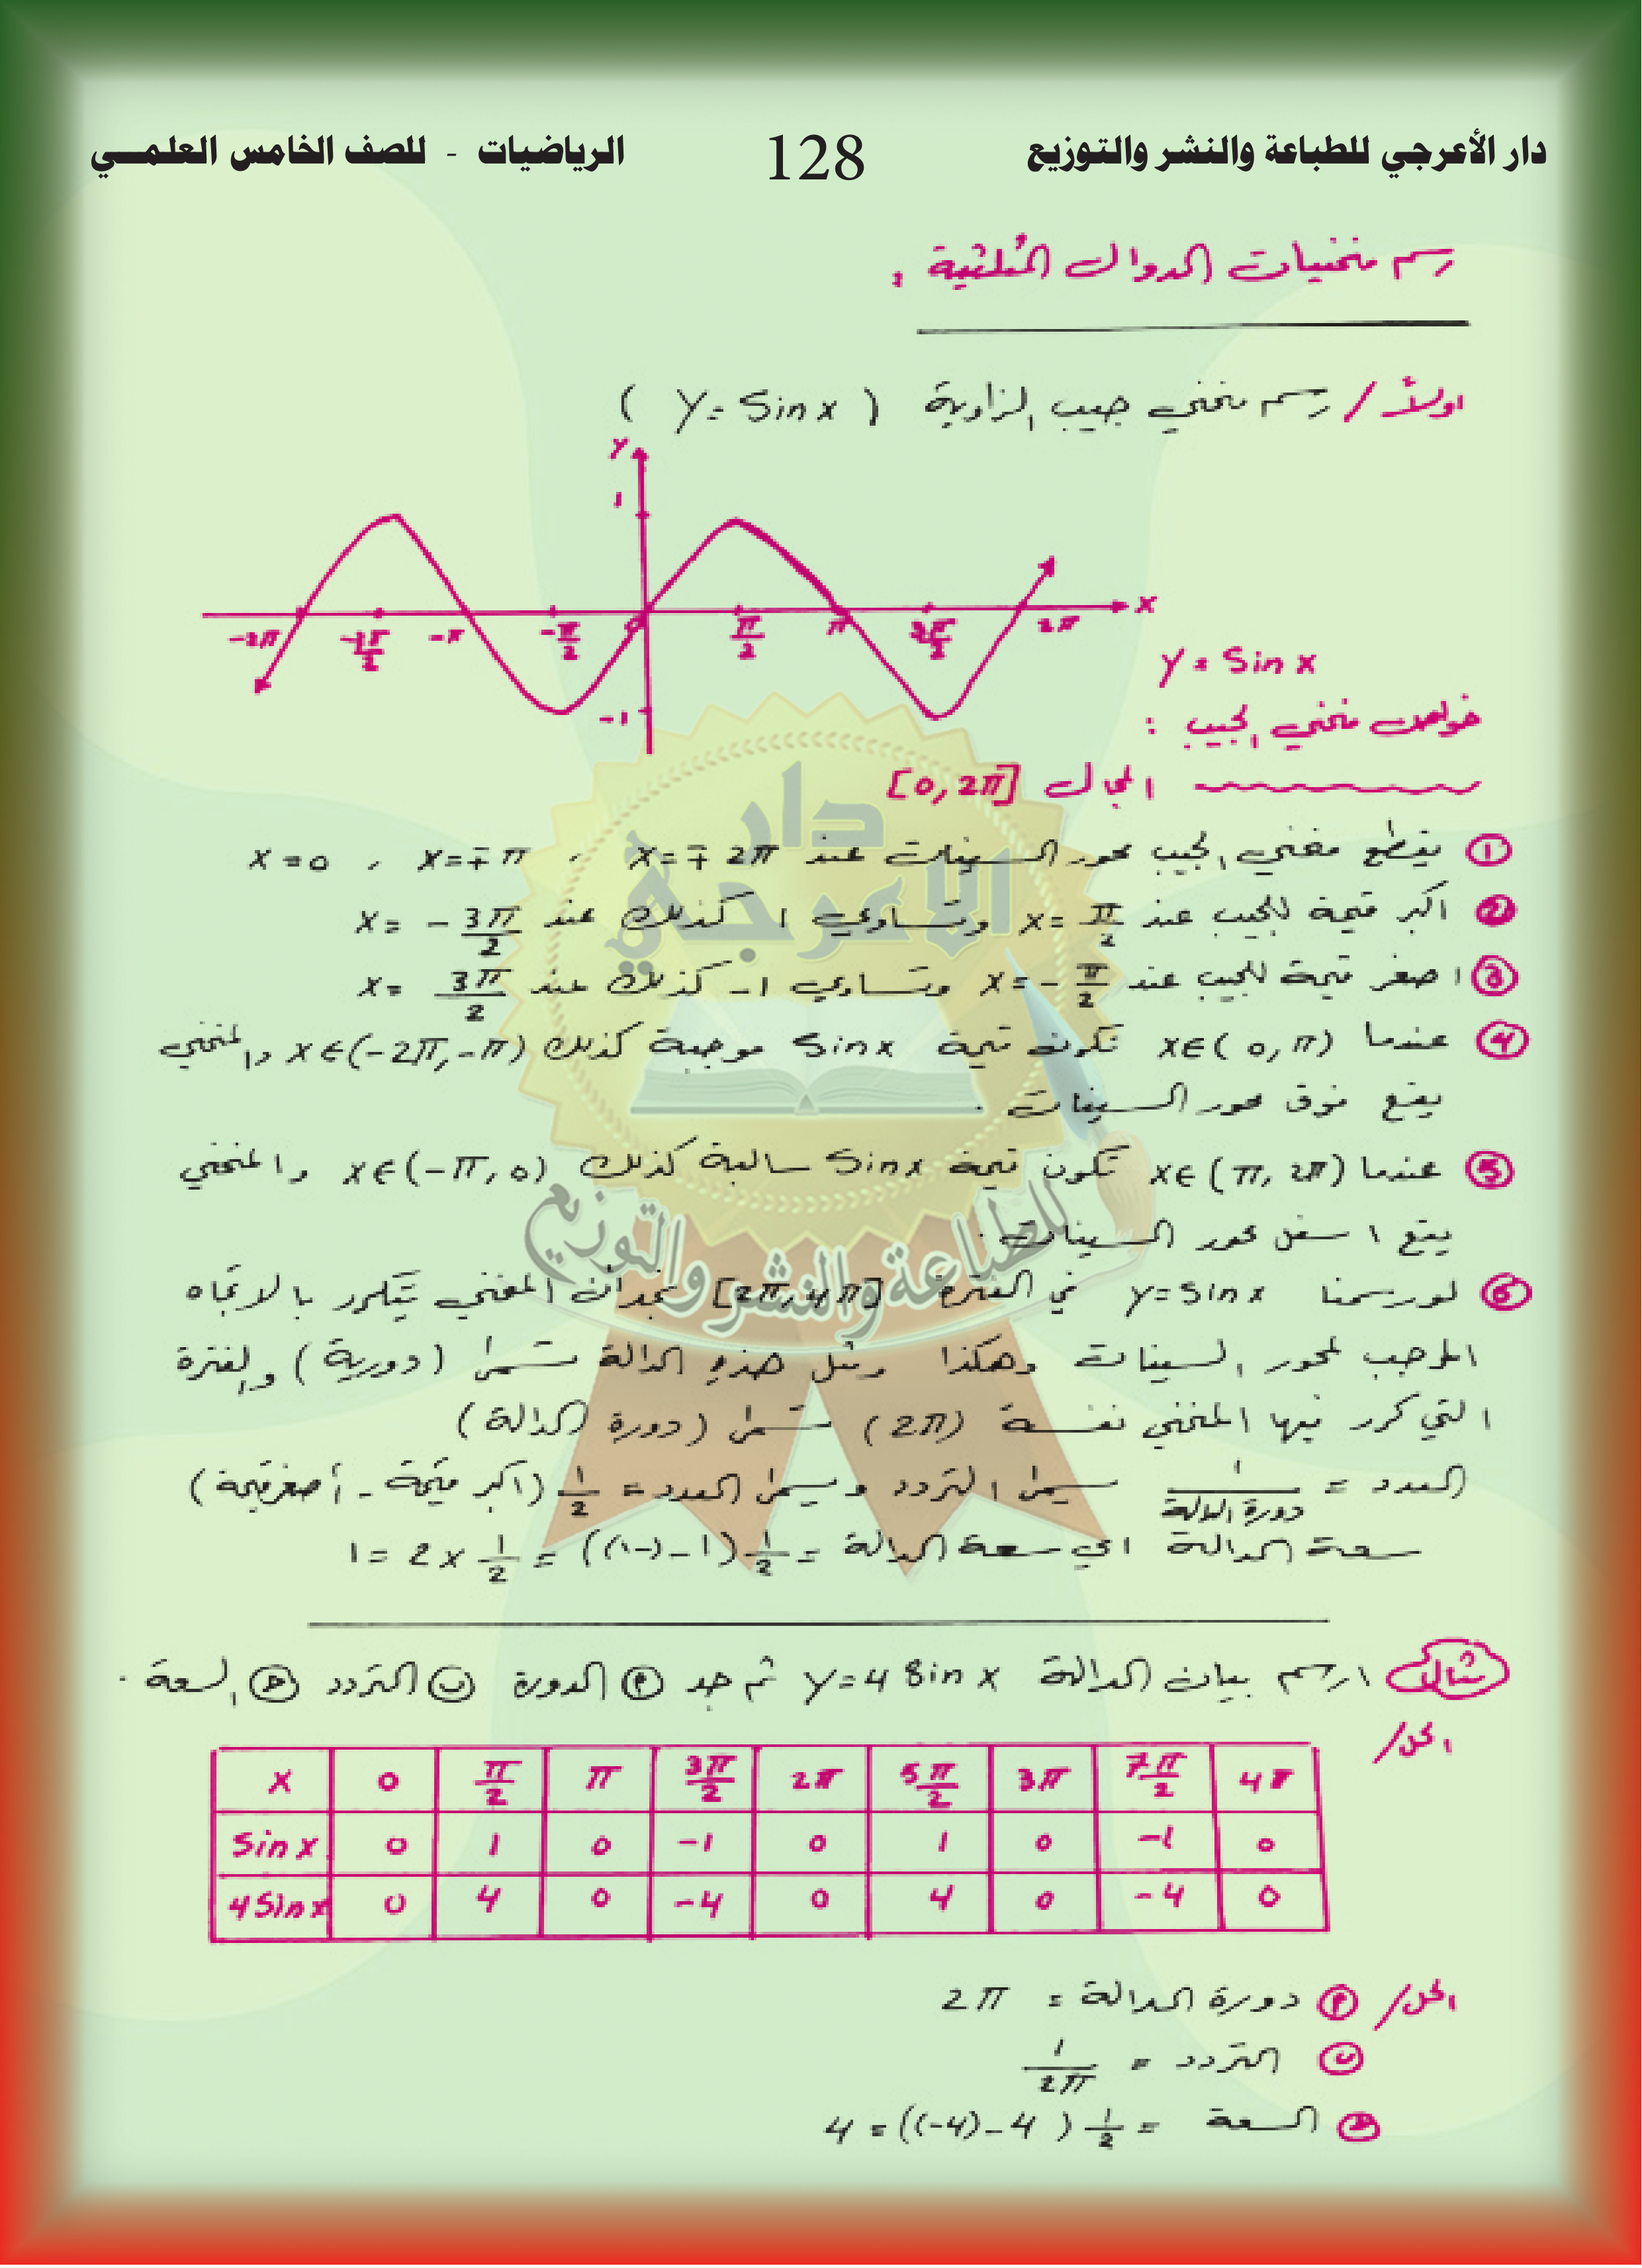 دار الأعرجي للطباعة والنشر والتوزيع 128 الرياضيات - للصف الخامس العلمـــي
رسم منحنيات الدوال المثلثية :
اولاً / رسم منحني جيب الزاوية ( y = Sin x )
y
1
-2π -3π/2 -π -π/2 0 π/2 π 3π/2 2π x
-1
y = Sin x
خواص منحني الجيب :
المجال [0, 2π]
① يقطع منحني الجيب محور السينات عند x = ∓ 2π ، x = ∓ π ، x = 0
② اكبر قيمة للجيب عند x = π/2 وتساوي 1 كذلك عند x = - 3π/2
③ اصغر قيمة للجيب عند x = - π/2 وتساوي 1- كذلك عند x = 3π/2
④ عندما x∈( 0, π) تكون قيمة Sin x موجبة كذلك x∈(-2π, -π) والمنحني
يقع فوق محور السينات .
⑤ عندما x∈(π, 2π) تكون قيمة Sin x سالبة كذلك x∈(-π, 0) والمنحني
يقع اسفل محور السينات .
⑥ لو رسمنا y = Sin x في الفترة [2π, 4π] نجد ان المنحني يتكرر بالاتجاه
الموجب لمحور السينات وهكذا ومثل هذه الدالة تسمى (دورية) والفترة
التي كرر فيها المنحني نفسة (2π) تسمى (دورة الدالة)
العدد = 1/دورة الدالة يسمى التردد ويسمى العدد = 1/2 (اكبر قيمة - أصغر قيمة)
سعة الدالة اي سعة الدالة = 1/2 (1-(-1)) = 1/2 × 2 = 1
مثال ارسم بيان الدالة y = 4 Sin x ثم جد Ⓟ الدورة ⓑ التردد ⓒ السعة .
الحل/
x 0 π/2 π 3π/2 2π 5π/2 3π 7π/2 4π
Sin x 0 1 0 -1 0 1 0 -1 0
4 Sin x 0 4 0 -4 0 4 0 -4 0
الحل/ Ⓟ دورة الدالة = 2π
ⓑ التردد = 1/2π
ⓒ السعة = 1/2 ( 4-(-4)) = 4
دار
الاعرجي
للطباعة والنشر والتوزيع